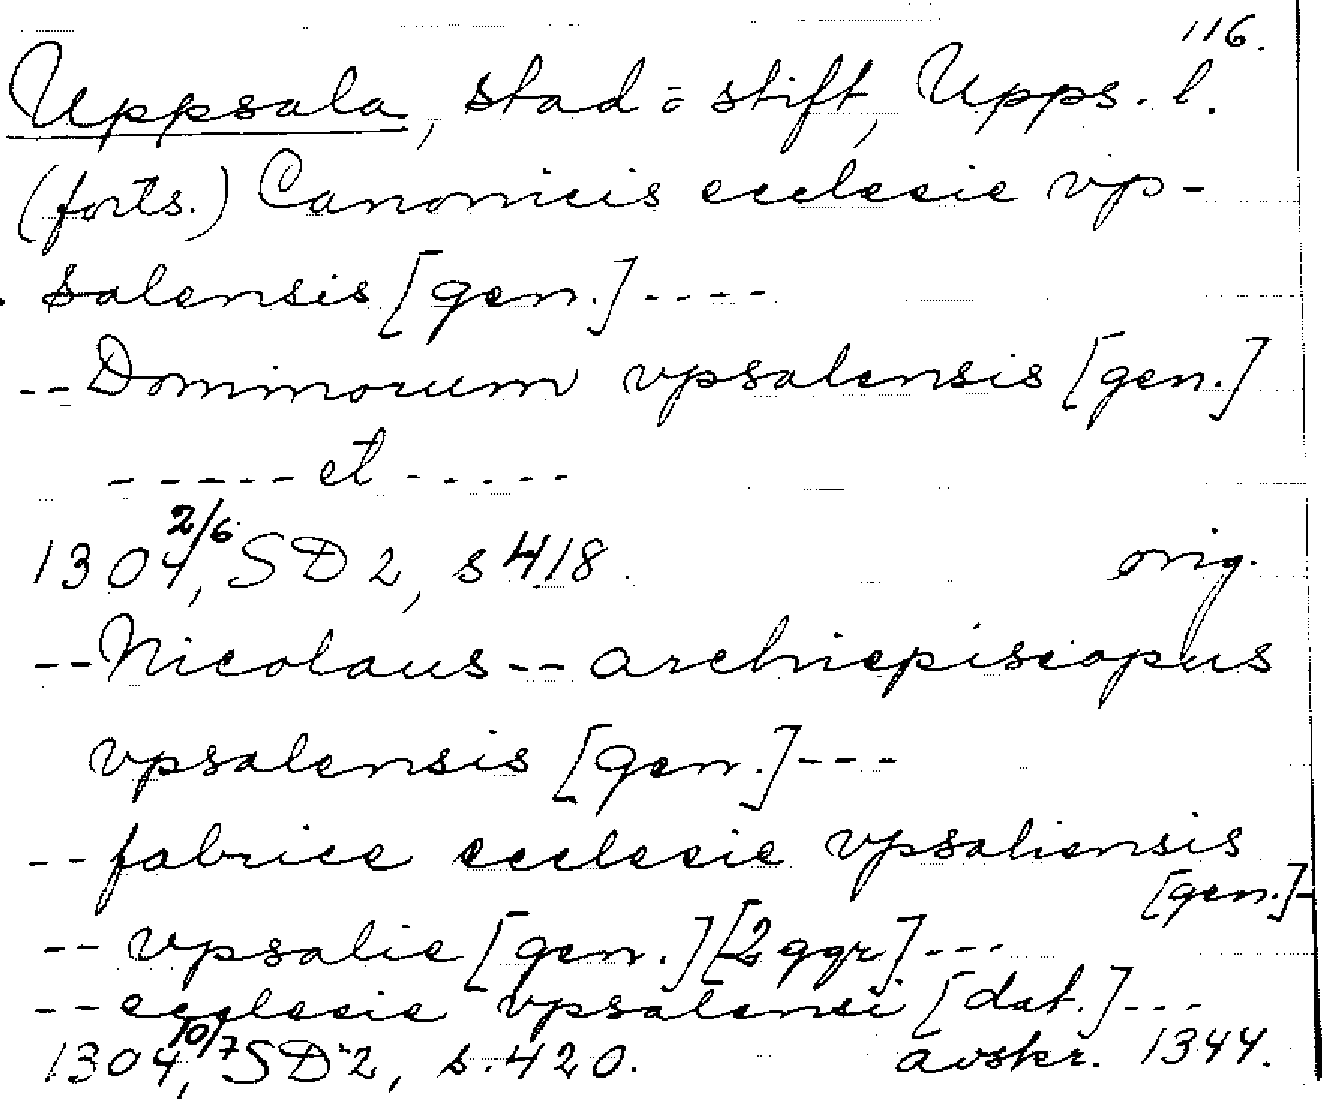 116.
Uppsala, stad o stift, Upps. l.
(forts.) Canonicis ecclesie vp-
salensis [gen.] ----
-- Dominorum vpsalensis [gen.]
----- et -----
1304 2/6, SD 2, s 418. orig.
-- Nicolaus -- archiepiscopus
vpsalensis [gen.] ---
-- fabrice ecclesie vpsaliensis
[gen.] -
-- vpsalie [gen.] [2 ggr] ---
-- ecclesie vpsalensi [dat.] ---
1304 10/7, SD 2, s. 420. avskr. 1344.